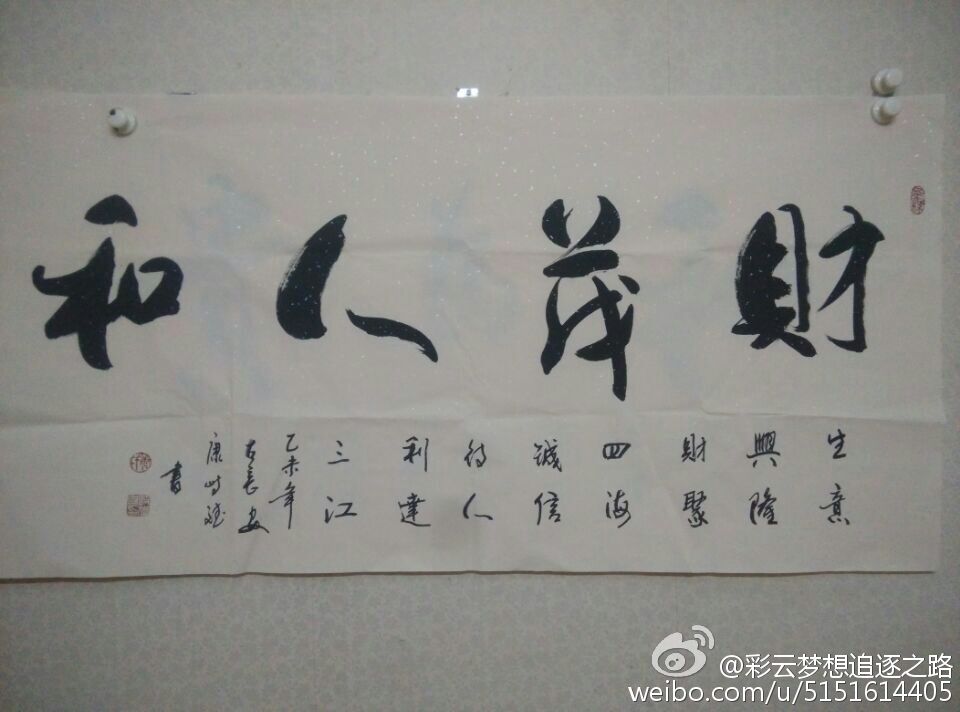 財茂人和
生意
興隆
財聚
四海
誠信
待人
利達
三江
乙未年
古長安
康
書
@彩云梦想追逐之路
weibo.com/u/5151614405